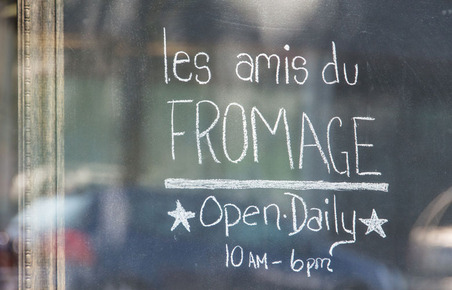 les amis du
FROMAGE
Open·Daily
10AM - 6pm